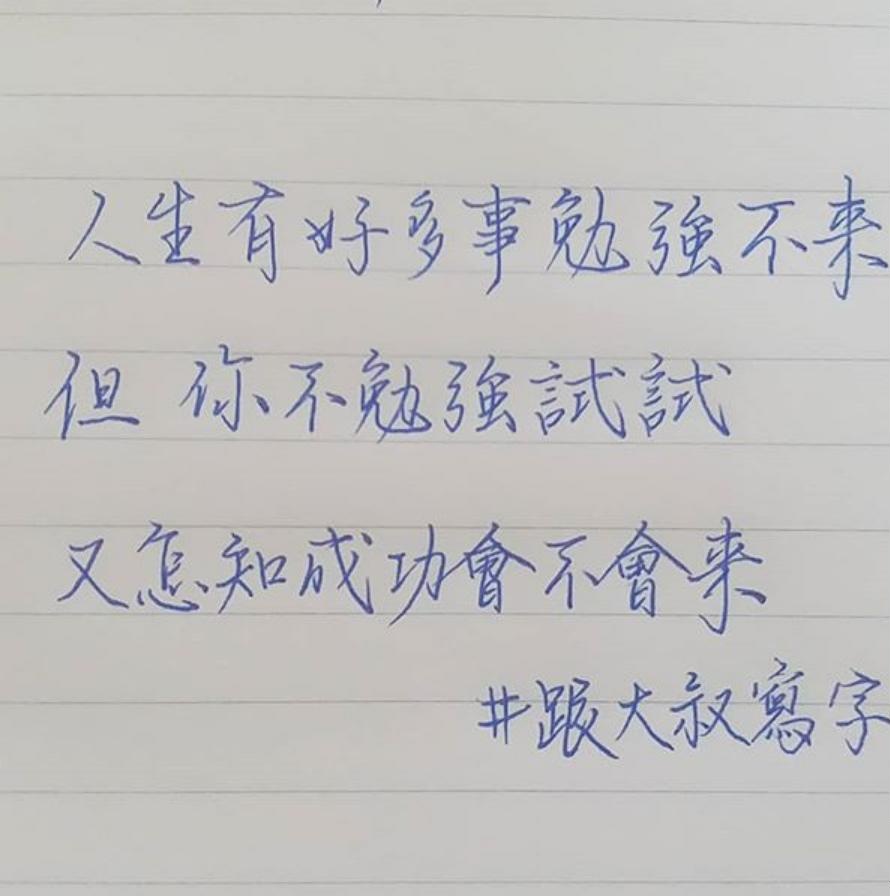 人生有好多事勉強不来
但你不勉強試試
又怎知成功會不會来
#跟大叔寫字